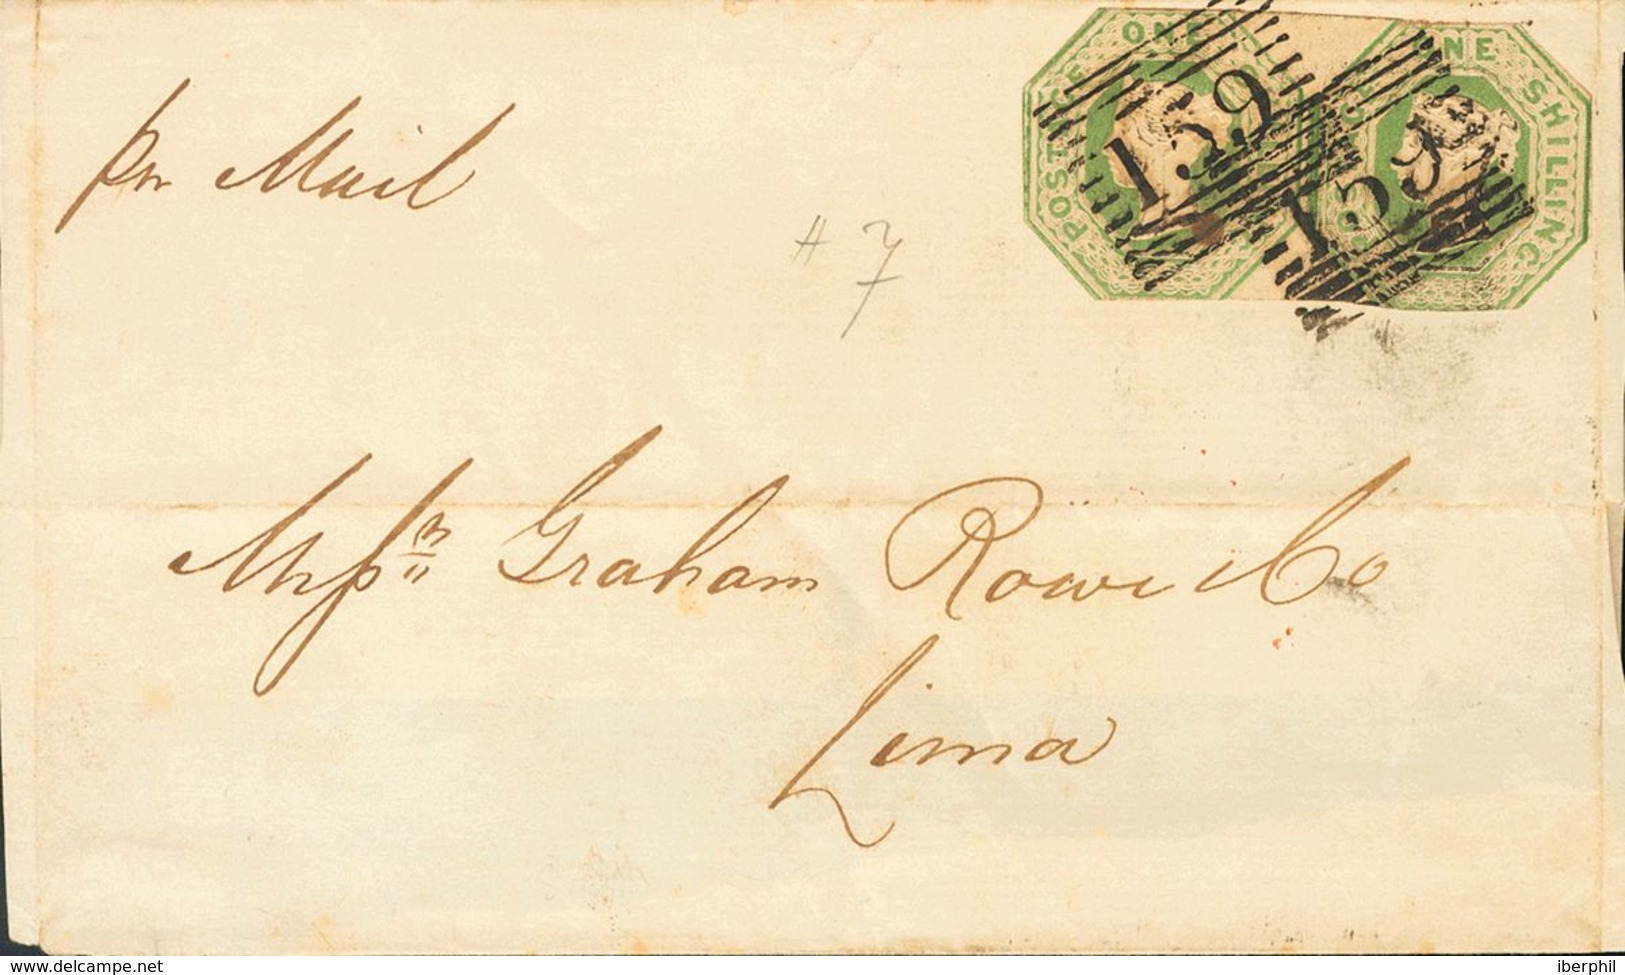 ONE SHILLING
POSTAGE
ONE SHILLING
159
159
per Mail
# 7
Mess.rs Graham Rowe & Co
Lima
iberphil
www.delcampe.net